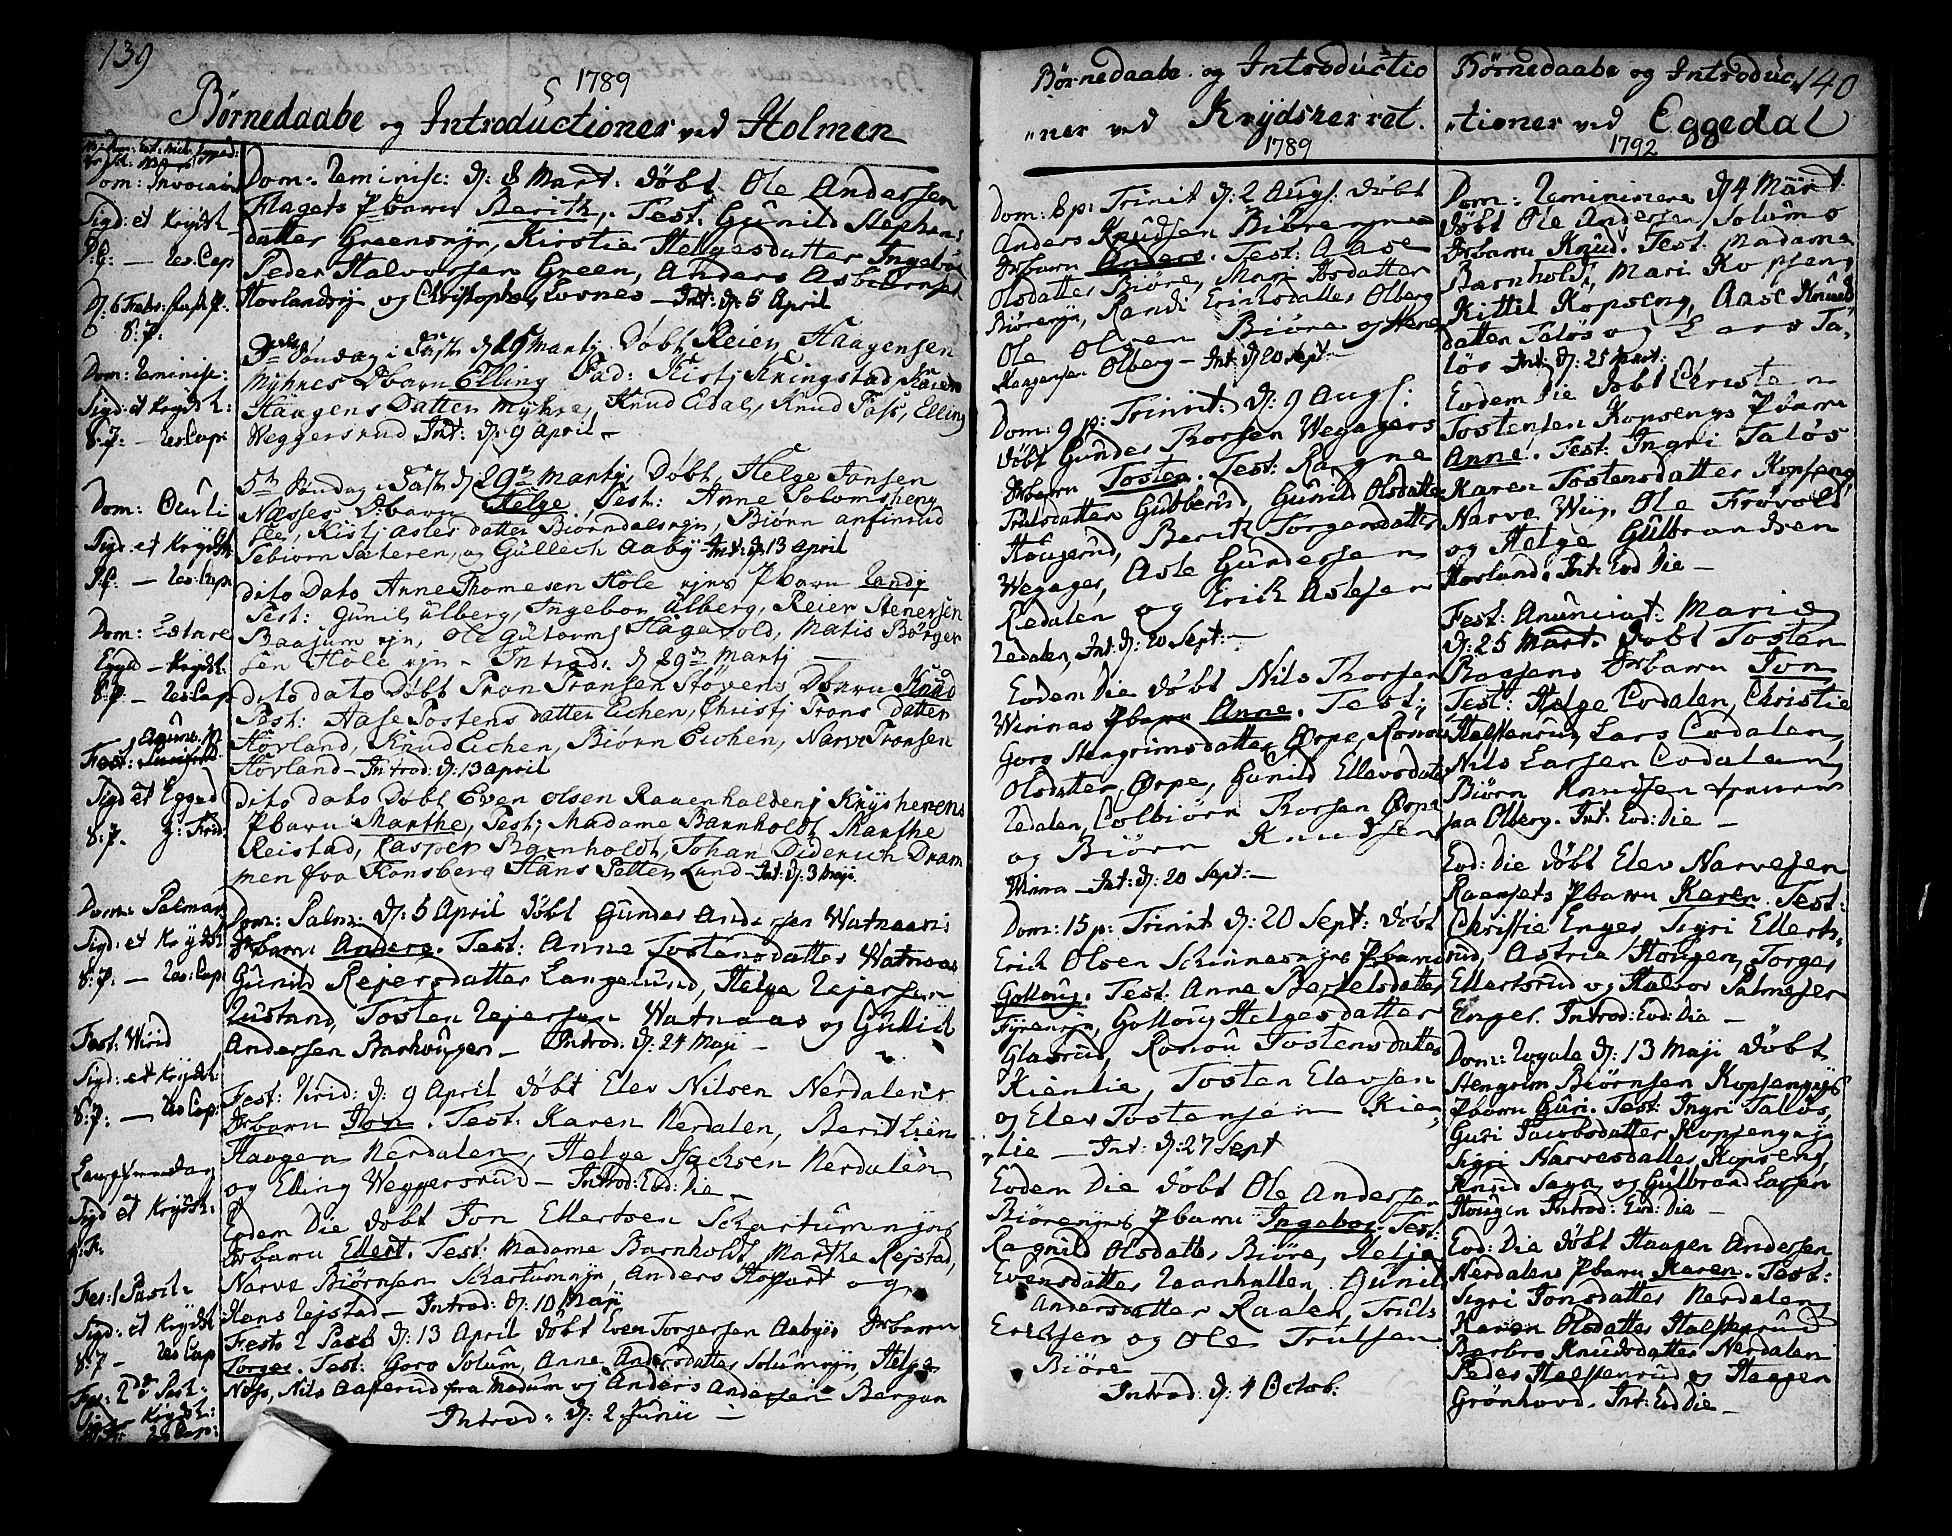 139
1789
Børnedaabe og Introductioner ved Holmen
Dom: Invocavit
Sigd: et Krydsh:
P.G: — Res: Cap
S: P.
Dom: Reminisc:
Sigd: et Krydsh:
S: P: — Res: Cap:
Dom: Oculi
Sigd: et Krydsh
P: — Res: Cap
Dom: Lætare
Egge — Krydsh:
S: P. — Res: Cap
Fest:
Sigd et Egged
S: P.
Dom: Palmar
Sigd: et Krydsh
S: P. — Res: Cap
Fest: Virid
Sigd: et Krydsh:
S: P: — Res Cap:
Langfreedag
Sigd et Krydsh:
Fest: Pasch:
Sigd: et Krydsh
S: P — Res Cap
Fest: 2d Pasch:
Krydsh:
Res Cap:
Dom: Reminisc: d: 8 Mart: døbt Ole Andersen
Flagets Pbarn Berith. Test: Gunild Stephens
datter Greensejn, Kirstie Helgesdatter Ingebor
Peder Halvorsen Green, Anders Asbiørnsen
Hovlandsej og Christopher Evenes — Int: d: 5 April
3die Søndag i Fast d 15 Martj. Døbt Reier Haagensen
Myhres Dbarn Elling Fad: Kistj Kringstad Karen
Haagens Datter Myhre, Knud Eidal, Knud Fass, Elling
Weggersrud Int: d: 9 April —
5te Søndag i Fast d 29de Martj, Døbt Helge Jonsen
Næsses Dbarn Helge. Test: Anne Solomsheng
See, Kistj Asler datter Biørndalsejn, Biørn anfinrud
Sebiørn Sæteren, og Gullech Aaby — Int: d: 13 April
dito Dato Anne Thomesen Hole ejns Pbarn Randj
Test: Gunil Ulberg, Ingebor Ulberg, Reier Stenersen
Baasum ejn, Ole Gutorms Hagavold, Matis Børger
sen Hole ejn — Introd. d 29de Martj —
dito dato Døbt Tron Tronsen Støvens, Dbarn Knud
Test: Aase Tostens datter Eichen, Christj Trons datter
Hovland, Knud Eichen, Biørn Eichen, Narve Tronsen
Hovland — Introd: d: 13 april
dito dato Døbt Even Olsen Ravnhalden j Krysherrens
Pbarn Marthe, Test; Madame Barnholdt Marthe
Reistad, Casper Barnholdt, Johan Diderich Dram
men fra Konsberg Hans Petter Lund — Int: d: 3 Maji
Dom: Palm: d: 5 April døbt Gunder Andersen Watnaaris
Drbarn Anders. Test: Anne Tostensdatter Watnaas
Gunild Rejersdatter Langelund, Helge Rejersen
Rustand, Tosten Rejersen Watnaas og Gullich
Andersen Barhougen — Introd: d: 24 Maji —
Fest: Virid: d: 9 April døbt Elev Nilsen Nerdalens
Drbarn Jon. Test: Karen Nerdalen, Berit Lien
Haagen Nerdalen, Helge Isachsen Nerdalen
og Elling Weggersrud — Introd: Eod: Die —
Eodem Die døbt Jon Ellertsen Schartumejns
Drbarn Ellert. Test: Madame Barnholdt, Marthe Rejstad,
Narve Biørnsen Schartumejn, Anders Hoffart og
Hans Rejstad — Introd: d: 10 Maji
Festo 2 Pasch d: 13 April døbt Even Torgersen Aabyes Drbarn
Torger. Test: Goro Solum, Anne Andersdatter Solumsejn, Helge
Næss, Nils Aasserud fra Modum og Anders Andersen Bergan
Introd: d: 2 Junii —
Børnedaabe og Introductio
„ner ved Krydsherret.
1789
Dom: 8 p: Trinit d: 2 Aug: døbt
Anders Knudsen Biøreejns
Drbarn Anders. Test: Aase
Olsdatter Biøre, Mari Olsdatter
Biøreejn, Randi Eriksdatter Olberg
Ole Olsen Biøre og Hans
Haagensen Olberg — Int: d: 20 Sept —
Dom: 9 p: Trinit: d: 9 Aug:
døbt Gunder Thorsen Wegagers
Drbarn Tosten. Test: Ragne
Trulsdatter Gubberud, Gunild Olsdatter
Haugerud, Berit Torgersdatter
Wegager, Asle Gundersen
Redalen og Erich Aslesen
Redalen, Int: d: 20 Sept: —
Eodem Die døbt Nils Thorsen
Winnas Pbarn Anne. Test:
Goro Stengrimsdatter Ørpe, Ronnou
Olsdatter Ørpe, Gunild Ellevsdatter
Redalen, Colbiørn Thorsen Ørpe
og Biørn Knudsen
Winna — Int: d: 20 Sept: —
Dom: 15 p: Trinit d: 20 Sept: døbt
Erich Olsen Skinnesejns Pbarn
Gollou. Test: Anne Barkelsdatter
Fyreneejn, Gollou Helgesdatter
Glasrud, Ronnou Tostensdatter
Kienlie, Tosten Elevsen
og Elev Tostensen Kien
„lie — Int: d: 27 Sept
Eodem Die døbt Ole Andersen
Biøreejns Pbarn Ingebor. Test:
Ragnild Olsdatter Biøre, Helje
Evensdatter Raanhallen, Gunild
Andersdatter Raalen, Truls
Erichsen og Ole Trulsen
Biøre
Introd: d: 4 Octob:
Børnedaabe og Introduc
140
„tioner ved Eggedal
1792
Dom: Reminiscere d 4 Mart
døbt Ole Andersen Solums
Drbarn Knud. Test: Madame
Barnholdt, Mari Kopseng
Kittil Kopseng, Aase Knuds
datter Taløs og Lars Ta-
løs — Int: d: 25 Mart:
Eodem Die døbt Christen
Tostensen Kopsengs Pbarn
Anne. Test: Ingri Taløs
Karen Tostensdatter Kopseng
Narve Wiig, Ole Frøvold
og Helge Gulbrandsen
Hovland. Int: Eod Die —
Fest: Anunciat: Mariæ
d: 25 Mart: døbt Tosten
Roasens Drbarn Jon
Test: Helge Codalen, Christie
Halstenrud, Lars Codalen,
Nils Larsen Codalen,
Biørn Knudsen
paa Olberg. Int: Eod: Die —
Eod: Die døbt Elev Narvesen
Raaensets Pbarn Karen. Test:
Christie Enger, Sigri Ellerts
rud, Astrie Hougen, Torger
Ellertsrud og Halvor Palmesen
Enger. Introd: Eod: Die —
Dom: Rogate d: 13 Maji døbt
Stengrim Biørnsen Kopsengejs
Pbarn Guri. Test: Ingri Taløs,
Guri Jacobsdatter Kopsengejn
Sigri Narvesdatter Kopseng,
Knud Saga og Gulbrand Larsen
Hougen Introd: Eod: Die —
Eod: Die døbt Haagen Andersen
Nerdalens Pbarn Karen. Test:
Sigri Jonsdatter Nerdalen
Karen Olsdatter Halstenrud
Barbro Knudsdatter Nerdalen
Peder Halstenrud og Haagen
Grønhovd. Int: Eod Die —